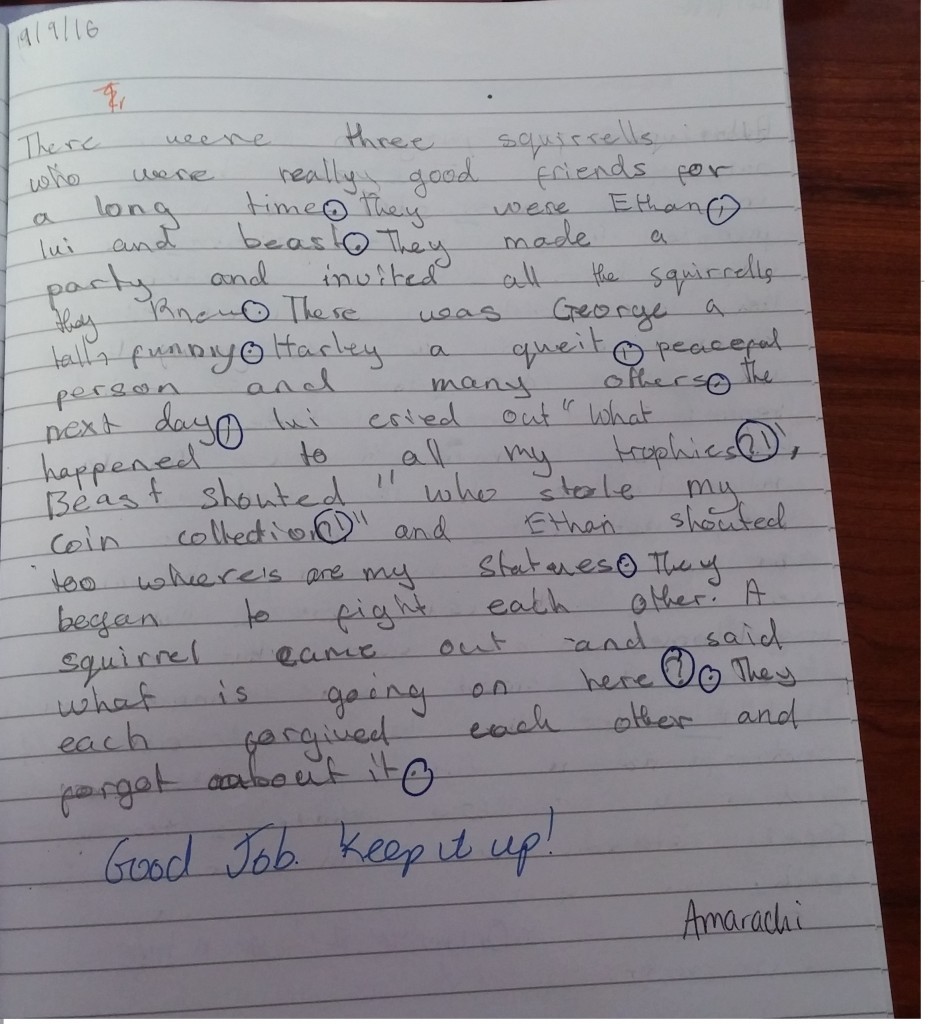 9/9/16
There weere three squirrells
who were really good friends for
a long time. They were Ethan,
lui and beast. They made a
party and invited all the squirrells
they Knew. There was George a
tall, funny. Harley a queit, peacefal
person and many others. The
next day, lui cried out "What
happened to all my trophies?!",
Beast shouted "who stole my
Coin collection?!" and Ethan shouted
too where's are my statues. They
began to fight each other. A
squirrel came out and said
what is going on here?. They
each forgived each other and
forgot about it.
Good Job. Keep it up!
Amarachi